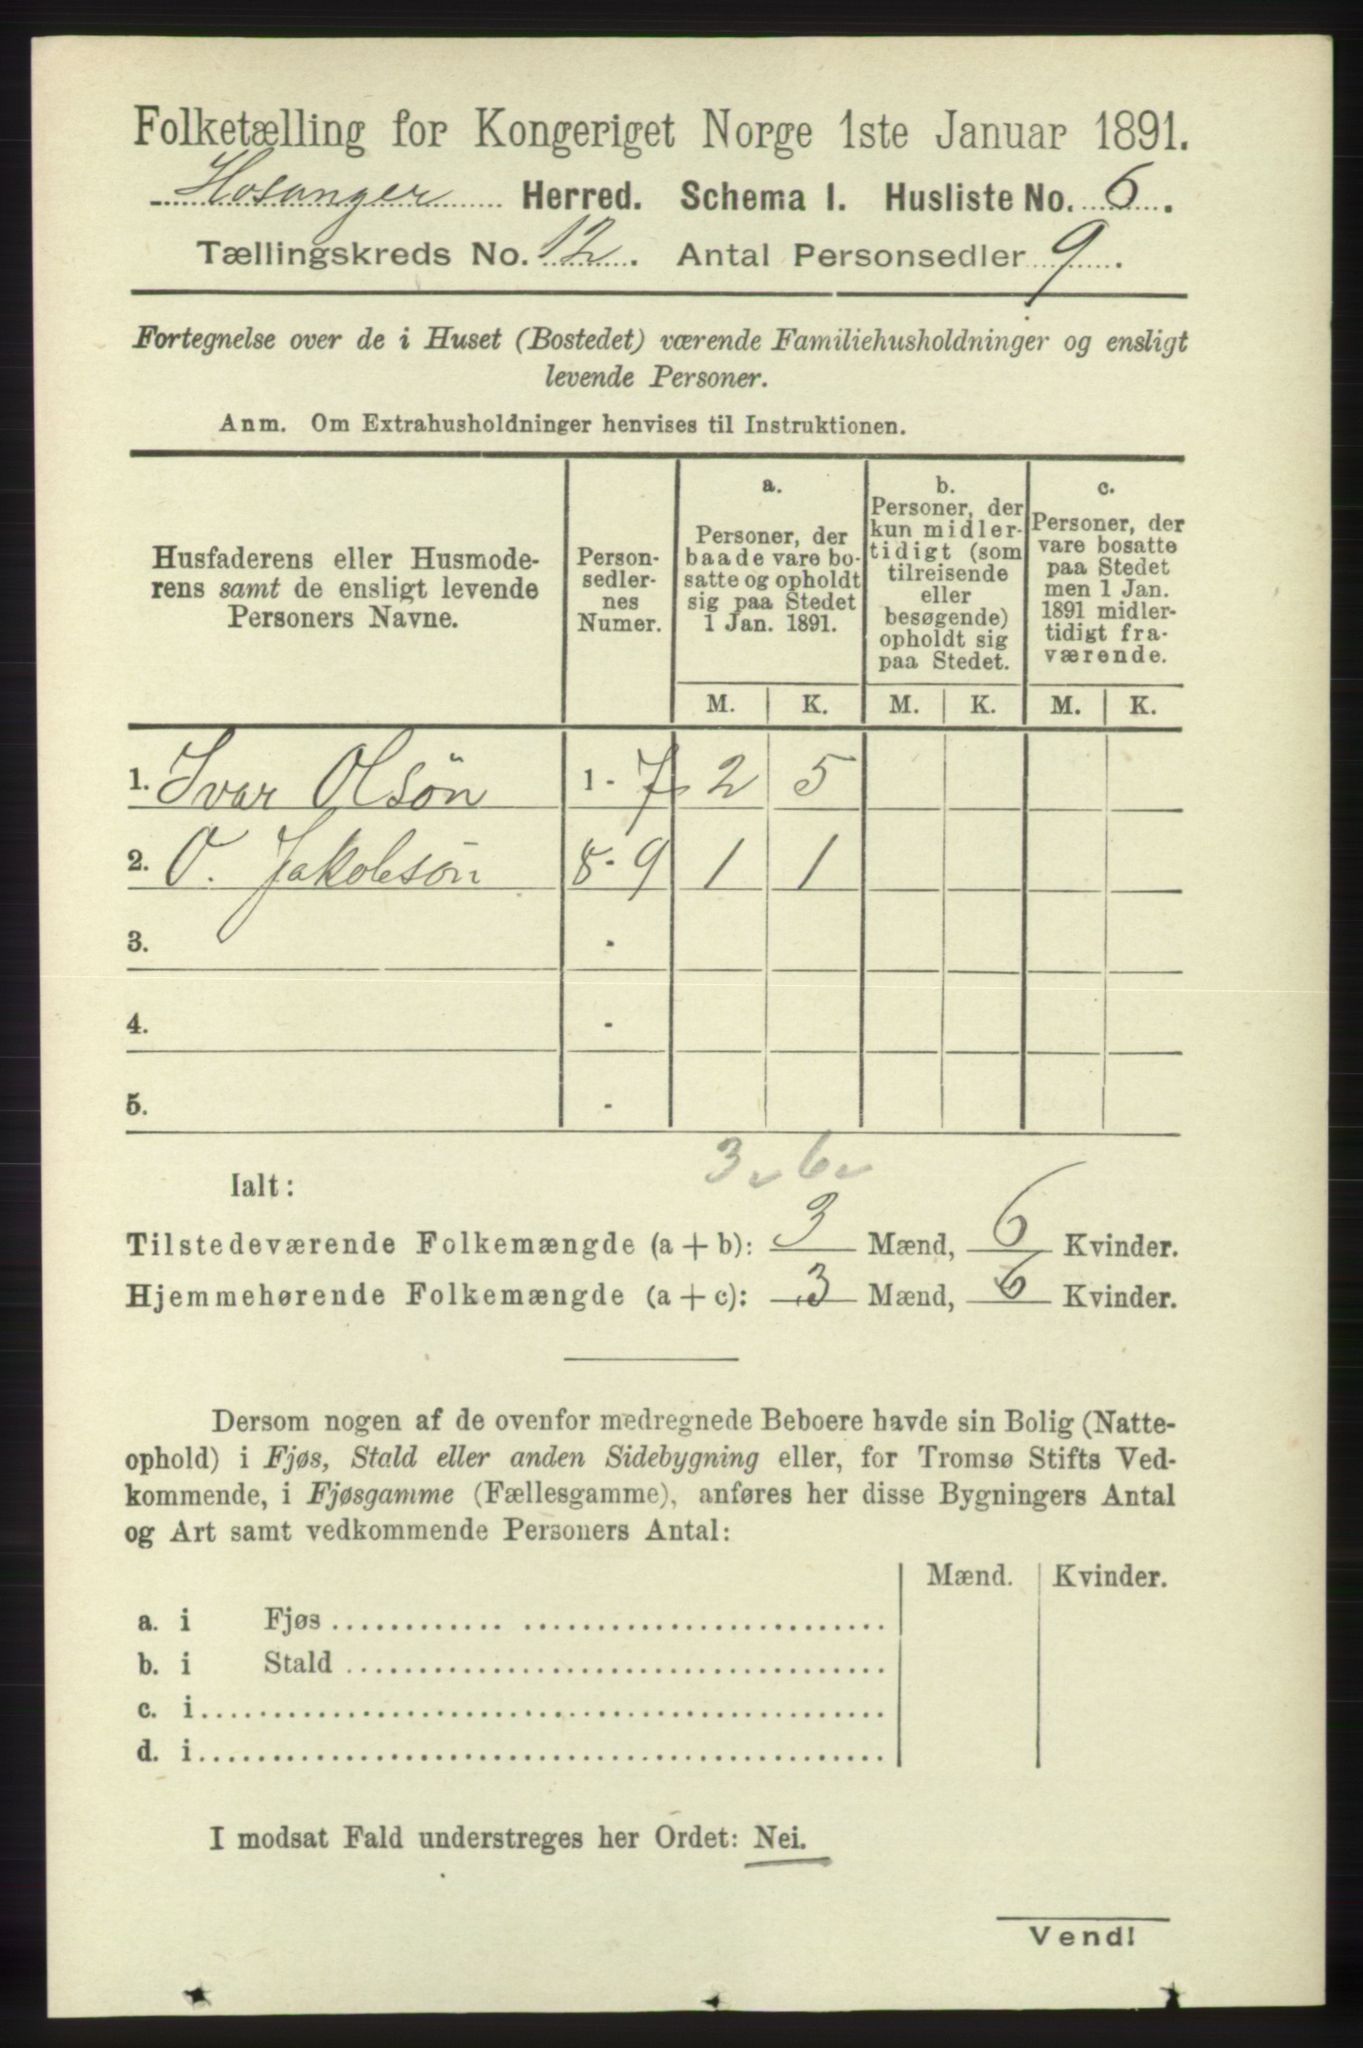 Folketælling for Kongeriget Norge 1ste Januar 1891.
Hosanger Herred. Schema I. Husliste No. 6.
Tællingskreds No. 12. Antal Personsedler 9.
Fortegnelse over de i Huset (Bostedet) værende Familiehusholdninger og ensligt
levende Personer.
Anm. Om Extrahusholdninger henvises til Instruktionen.
Husfaderens eller Husmode-
rens samt de ensligt levende
Personers Navne.
Person-
sedler-
nes
Numer.
a.
Personer, der
baade vare bo-
satte og opholdt
sig paa Stedet
1 Jan. 1891.
b.
Personer, der
kun midler-
tidigt (som
tilreisende
eller
besøgende)
opholdt sig
paa Stedet.
c.
Personer, der
vare bosatte
paa Stedet
men 1 Jan.
1891 midler-
tidigt fra-
værende.
M. K. M. K. M. K.
1. Ivar Olsøn 1 - 7 2 5
2. O. Jakobsøn 8 - 9 1 1
3. -
4. -
5. -
3 6
Ialt:
Tilstedeværende Folkemængde (a + b): 3 Mænd, 6 Kvinder.
Hjemmehørende Folkemængde (a + c): 3 Mænd, 6 Kvinder.
Dersom nogen af de ovenfor medregnede Beboere havde sin Bolig (Natte-
ophold) i Fjøs, Stald eller anden Sidebygning eller, for Tromsø Stifts Ved-
kommende, i Fjøsgamme (Fællesgamme), anføres her disse Bygningers Antal
og Art samt vedkommende Personers Antal:
Mænd. Kvinder.
a. i Fjøs
b. i Stald
c. i
d. i
I modsat Fald understreges her Ordet: Nei.
Vend!